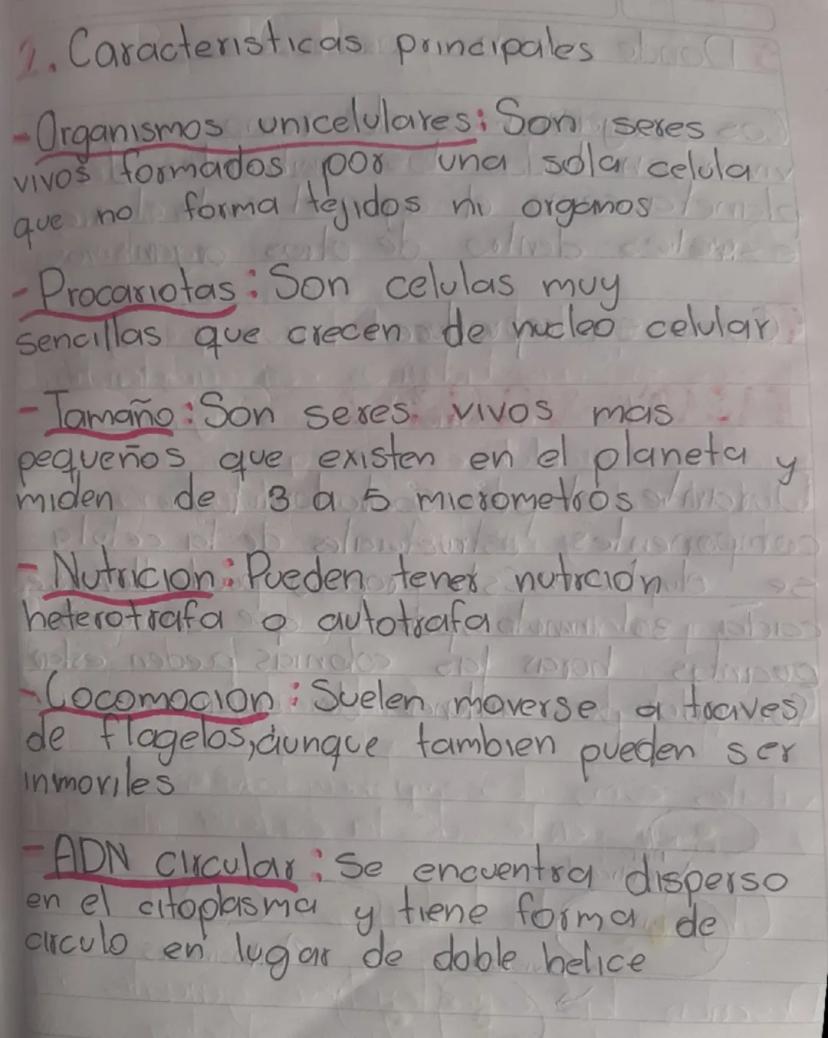 2. Caracteristicas principales
- Organismos unicelulares: Son seres
vivos formados por una sola celula
que no forma tejidos ni organos
- Procariotas: Son celulas muy
sencillas que crecen de nucleo celular
- Tamaño: Son seres vivos mas
pequeños que existen en el planeta y
miden de 3 a 5 micrometros
- Nutricion: Pueden tener nutrcion
heterotrafa o autotrafa
- Locomocion: Suelen moverse a traves
de flagelos, aunque tambien pueden ser
inmoviles
- ADN circular: Se encuentra disperso
en el citoplasma y tiene forma de
circulo en lugar de doble helice